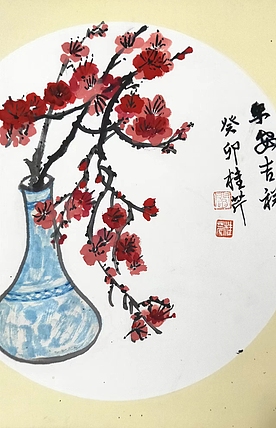 平安吉祥
癸卯桂芹